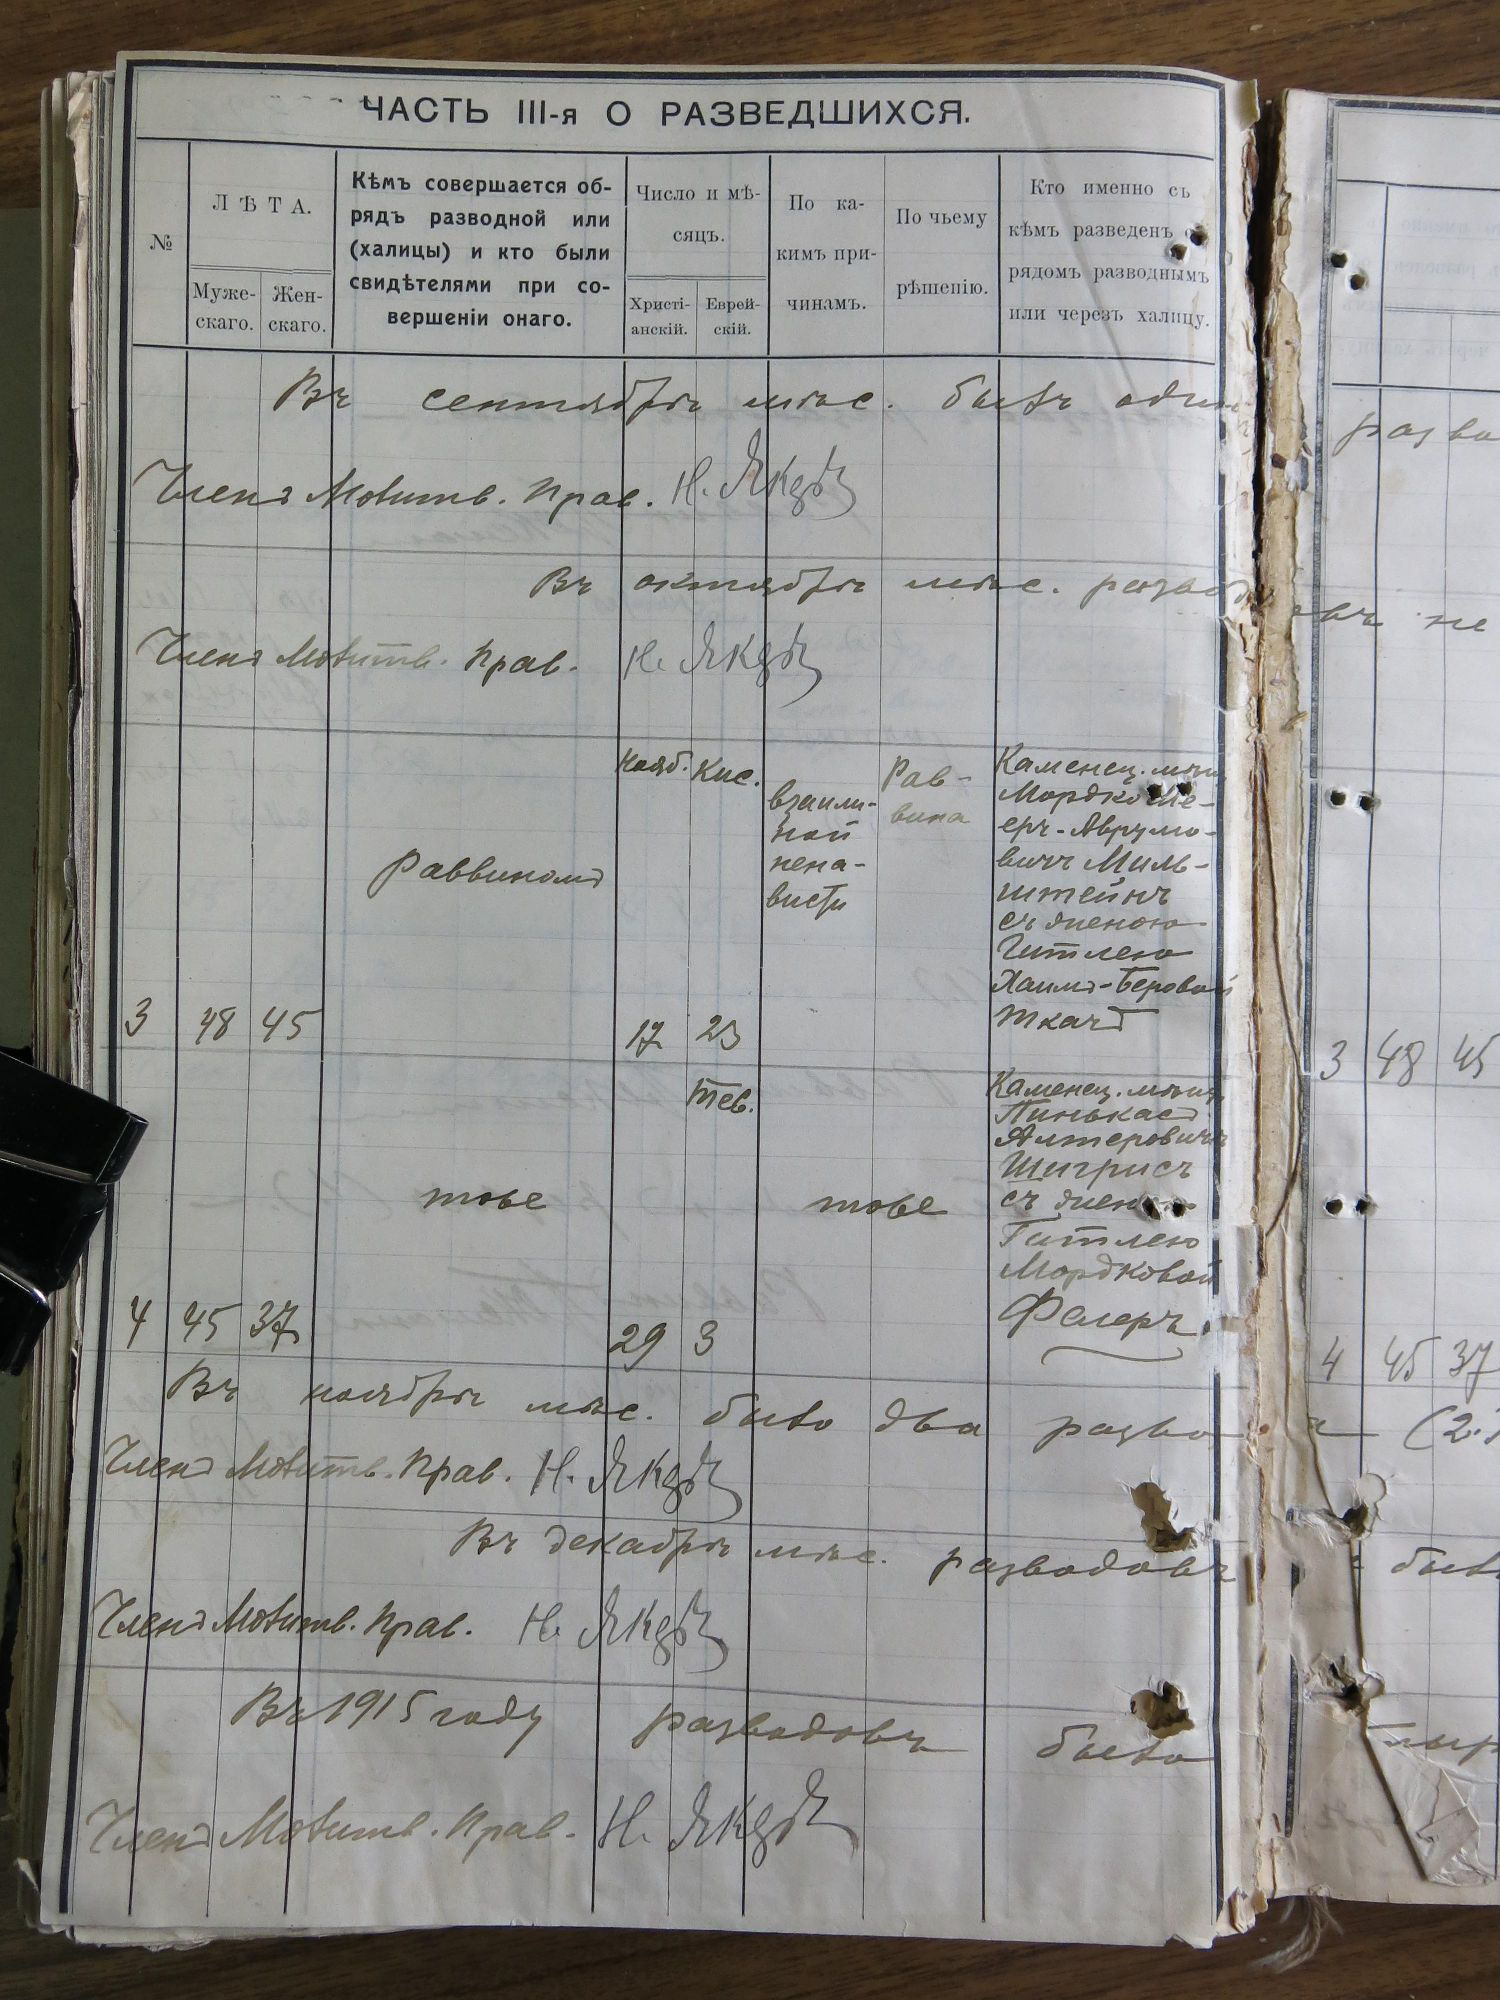 ЧАСТЬ III-я О РАЗВЕДШИХСЯ.
№
ЛѢТА.
Муже-
скаго.
Жен-
скаго.
Кѣмъ совершается об-
рядъ разводной или
(халицы) и кто были
свидѣтелями при со-
вершеніи онаго.
Число и мѣ-
сяцъ.
Христі-
анскій.
Еврей-
скій.
По ка-
кимъ при-
чинамъ.
По чьему
рѣшенію.
Кто именно съ
кѣмъ разведенъ об-
рядомъ разводнымъ
или черезъ халицу.
Въ сентябрѣ мѣс. былъ одинъ разво
Членъ Молитв. Прав. Н. Якубъ
Въ октябрѣ мѣс. разводовъ не
Членъ Молитв. Прав. Н. Якубъ
3 48 45
Раввиномъ
Нояб. 17
Кис. 23
взаим-
ной
нена-
висти
Рав-
вина
Каменец. мѣщ.
Мордко Ме-
еръ-Аврумо-
вичъ Миль-
штейнъ
съ женою
Гитлею
Хаимъ-Беровой
Ткачъ
3 48 45
4 45 37
тоже
29
Тев. 3
тоже
Каменец. мѣщ.
Пинькасъ
Алтеровичъ
Шигрисъ
съ женою
Гитлею
Мордковой
Фелеръ
4 45 37
Въ ноябрѣ мѣс. было два разво (2.
Членъ Молитв. Прав. Н. Якубъ
Въ декабрѣ мѣс. разводовъ
Членъ Молитв. Прав. Н. Якубъ
Въ 1915 году разводовъ было
Членъ Молитв. Прав. Н. Якубъ